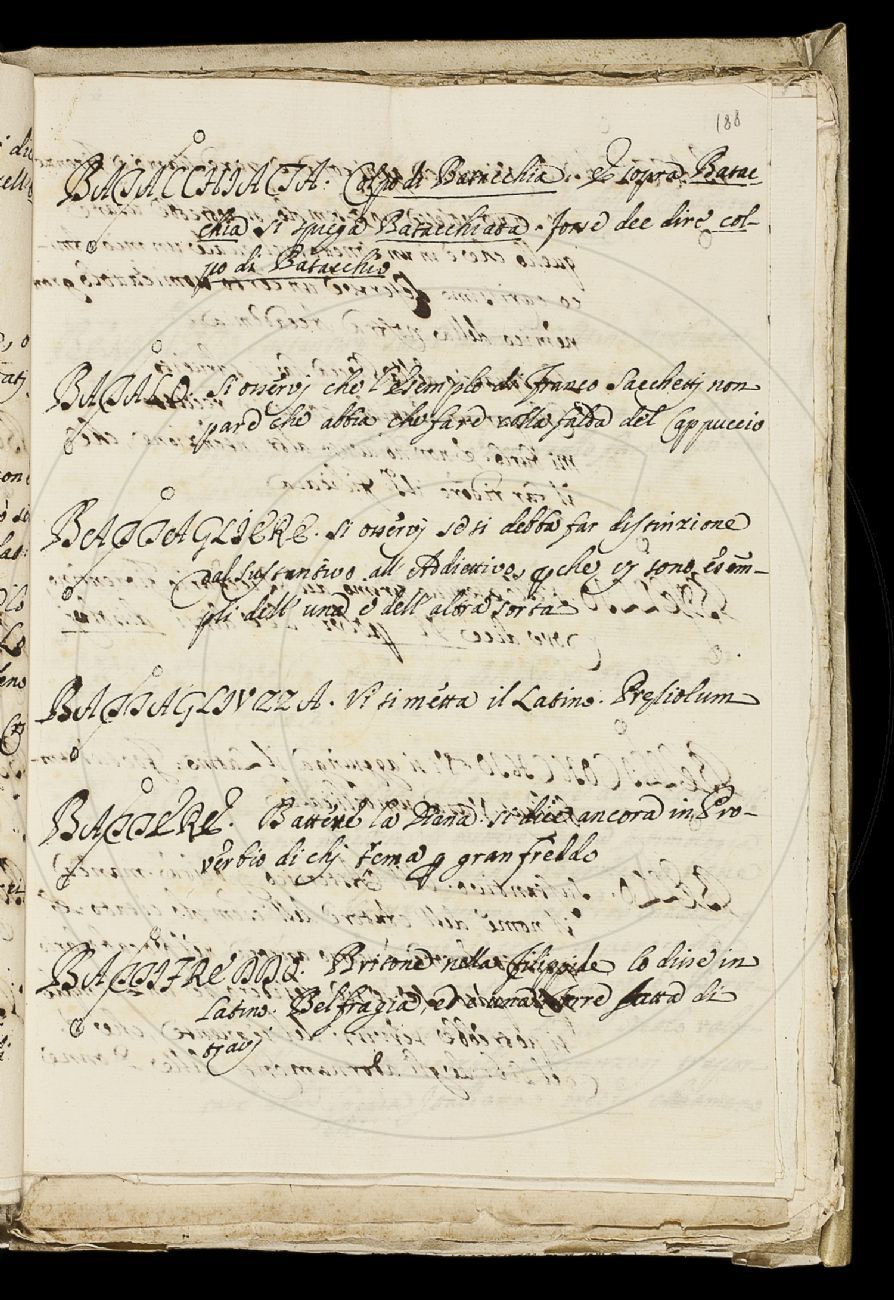 188
BATACCHIATA. Colpo di Batacchia. e sopra Batac
chia si spiega Batacchiata. forse dee dire col-
po di Batacchio
BATALO. Si osservj che l'esemplo di Franco Sacchettj non
pare che abbia che fare colla falda del Cappuccio
BATTAGLIERE. Si osservj se si debba far distinzione
dal Sustantivo all'Addiettivo, che vj sono esem-
pli dell'una e dell'altra sorta
BATTAGLIUZZA. Vi si metta il Latino. Presiolum
BATTERE. Battere la Diana si dice ancora in Pro-
verbio di chj trema gran freddo
BATTIFREDDO. Britone nella Filippide lo disse in
Latino. Belfragia, ed è una Torre fatta di
travj